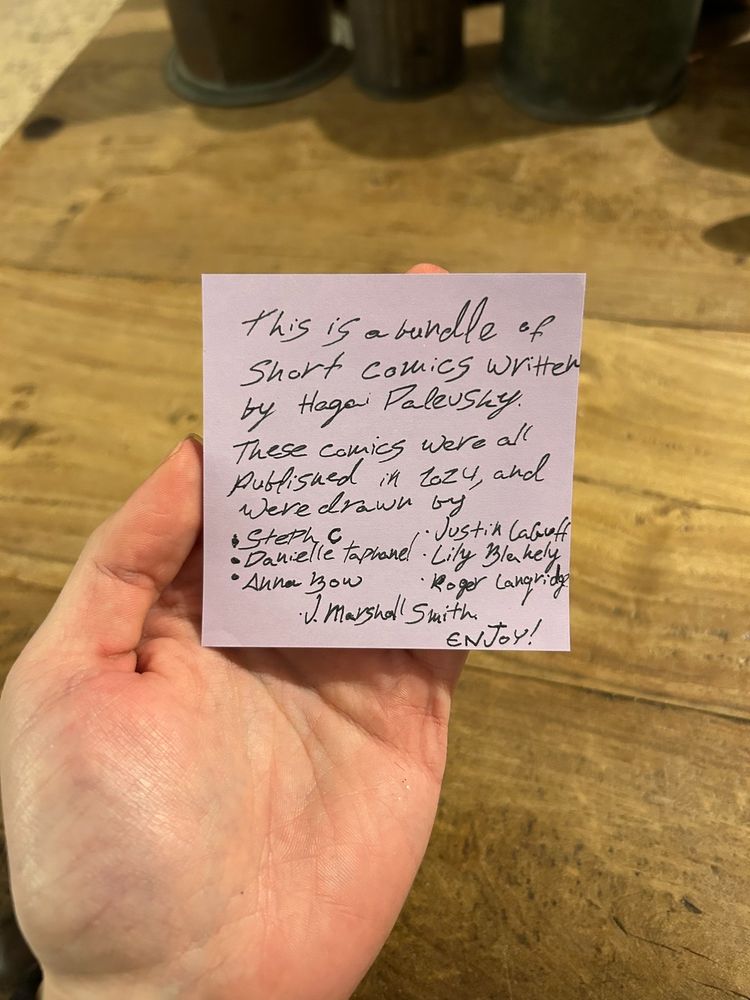 This is a bundle of
short comics written
by Hagai Palevsky.
These comics were all
published in 2024, and
were drawn by
• Steph C
· Justin LaGuff
• Danielle Taphanel
· Lily Blakely
• Anna Bow
· Roger Langridge
· J. Marshall Smith
ENJOY!